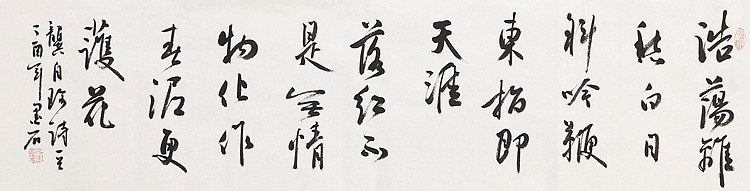 浩蕩離
愁白日
斜吟鞭
東指即
天涯
落紅不
是無情
物化作
春泥更
護花
龔自珍詩
丁酉年墨石